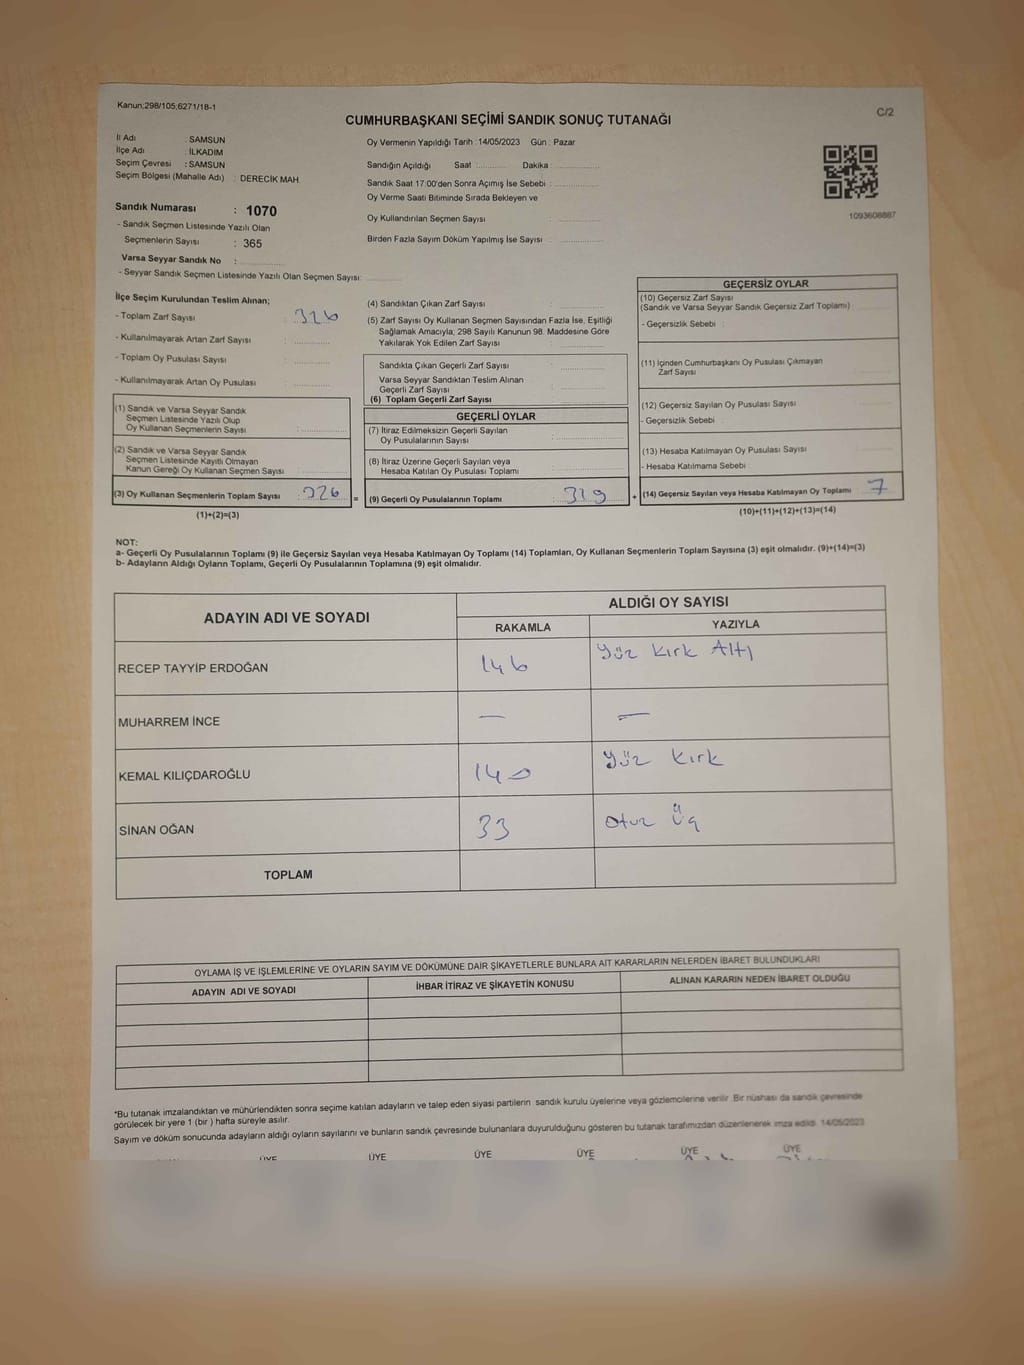 Kanun;298/105;6271/18-1
C/2
CUMHURBAŞKANI SEÇİMİ SANDIK SONUÇ TUTANAĞI
İl Adı : SAMSUN
İlçe Adı : İLKADIM
Seçim Çevresi : SAMSUN
Seçim Bölgesi (Mahalle Adı) : DERECİK MAH.
Sandık Numarası : 1070
- Sandık Seçmen Listesinde Yazılı Olan
Seçmenlerin Sayısı : 365
Varsa Seyyar Sandık No :
- Seyyar Sandık Seçmen Listesinde Yazılı Olan Seçmen Sayısı:
Oy Vermenin Yapıldığı Tarih : 14/05/2023 Gün : Pazar
Sandığın Açıldığı Saat Dakika
Sandık Saat 17:00'den Sonra Açımış İse Sebebi :
Oy Verme Saati Bitiminde Sırada Bekleyen ve
Oy Kullandırılan Seçmen Sayısı :
Birden Fazla Sayım Döküm Yapılmış İse Sayısı :
1093608867
İlçe Seçim Kurulundan Teslim Alınan;
- Toplam Zarf Sayısı : 326
- Kullanılmayarak Artan Zarf Sayısı :
- Toplam Oy Pusulası Sayısı :
- Kullanılmayarak Artan Oy Pusulası :
(1) Sandık ve Varsa Seyyar Sandık
Seçmen Listesinde Yazılı Olup
Oy Kullanan Seçmenlerin Sayısı :
(2) Sandık ve Varsa Seyyar Sandık
Seçmen Listesinde Kayıtlı Olmayan
Kanun Gereği Oy Kullanan Seçmen Sayısı :
(3) Oy Kullanan Seçmenlerin Toplam Sayısı : 326 =
(1)+(2)=(3)
(4) Sandıktan Çıkan Zarf Sayısı :
(5) Zarf Sayısı Oy Kullanan Seçmen Sayısından Fazla İse, Eşitliği
Sağlamak Amacıyla, 298 Sayılı Kanunun 98. Maddesine Göre
Yakılarak Yok Edilen Zarf Sayısı :
Sandıkta Çıkan Geçerli Zarf Sayısı :
Varsa Seyyar Sandıktan Teslim Alınan
Geçerli Zarf Sayısı :
(6) Toplam Geçerli Zarf Sayısı :
GEÇERLİ OYLAR
(7) İtiraz Edilmeksizin Geçerli Sayılan
Oy Pusulalarının Sayısı :
(8) İtiraz Üzerine Geçerli Sayılan veya
Hesaba Katılan Oy Pusulası Toplamı :
(9) Geçerli Oy Pusulalarının Toplamı : 319 +
GEÇERSİZ OYLAR
(10) Geçersiz Zarf Sayısı
(Sandık ve Varsa Seyyar Sandık Geçersiz Zarf Toplamı) :
- Geçersizlik Sebebi :
(11) İçinden Cumhurbaşkanı Oy Pusulası Çıkmayan
Zarf Sayısı :
(12) Geçersiz Sayılan Oy Pusulası Sayısı :
- Geçersizlik Sebebi :
(13) Hesaba Katılmayan Oy Pusulası Sayısı :
- Hesaba Katılmama Sebebi :
(14) Geçersiz Sayılan veya Hesaba Katılmayan Oy Toplamı 7
(10)+(11)+(12)+(13)=(14)
NOT:
a- Geçerli Oy Pusulalarının Toplamı (9) ile Geçersiz Sayılan veya Hesaba Katılmayan Oy Toplamı (14) Toplamları, Oy Kullanan Seçmenlerin Toplam Sayısına (3) eşit olmalıdır. (9)+(14)=(3)
b- Adayların Aldığı Oyların Toplamı, Geçerli Oy Pusulalarının Toplamına (9) eşit olmalıdır.
ADAYIN ADI VE SOYADI
ALDIĞI OY SAYISI
RAKAMLA YAZIYLA
RECEP TAYYİP ERDOĞAN 146 Yüz kırk Altı
MUHARREM İNCE — —
KEMAL KILIÇDAROĞLU 140 Yüz kırk
SİNAN OĞAN 33 Otuz Üç
TOPLAM
OYLAMA İŞ VE İŞLEMLERİNE VE OYLARIN SAYIM VE DÖKÜMÜNE DAİR ŞİKAYETLERLE BUNLARA AİT KARARLARIN NELERDEN İBARET BULUNDUKLARI
ADAYIN ADI VE SOYADI İHBAR İTİRAZ VE ŞİKAYETİN KONUSU ALINAN KARARIN NEDEN İBARET OLDUĞU
*Bu tutanak imzalandıktan ve mühürlendikten sonra seçime katılan adayların ve talep eden siyasi partilerin sandık kurulu üyelerine veya gözlemcilerine verilir. Bir nüshası da sandık çevresinde
görülecek bir yere 1 (bir ) hafta süreyle asılır.
Sayım ve döküm sonucunda adayların aldığı oyların sayılarını ve bunların sandık çevresinde bulunanlara duyurulduğunu gösteren bu tutanak tarafımızdan düzenlenerek imza edildi. 14/05/2023
ÜYE ÜYE ÜYE ÜYE ÜYE ÜYE